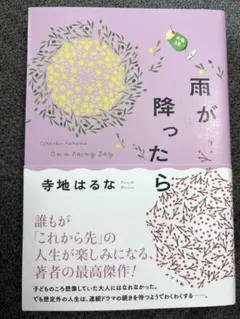 雨が
降ったら
Terachi Haruna
On a Rainy Day
寺地はるな
誰もが
「これから先」の
人生が楽しみになる、
著者の最高傑作!
子どものころ想像していた大人にはなれなかった。
でも想定外の人生は、連続ドラマの続きを待つようでわくわくする――。